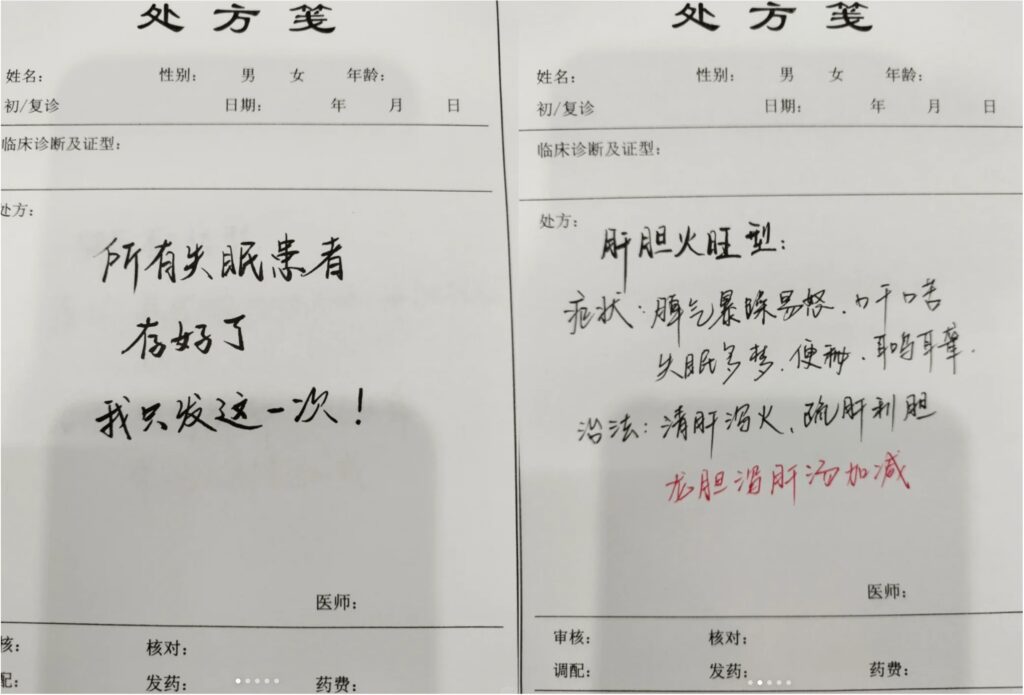 处方笺
姓名： 性别： 男 女 年龄：
初/复诊 日期： 年 月 日
临床诊断及证型：
处方：
所有失眠患者
存好了
我只发这一次！
医师：
核：
核对：
配：
发药：
药费：
处方笺
姓名： 性别： 男 女 年龄：
初/复诊 日期： 年 月 日
临床诊断及证型：
处方：
肝胆火旺型：
症状：脾气暴躁易怒、口干口苦
失眠多梦、便秘、耳鸣耳聋.
治法：清肝泻火、疏肝利胆
龙胆泻肝汤加减
医师：
审核： 核对：
调配： 发药： 药费：